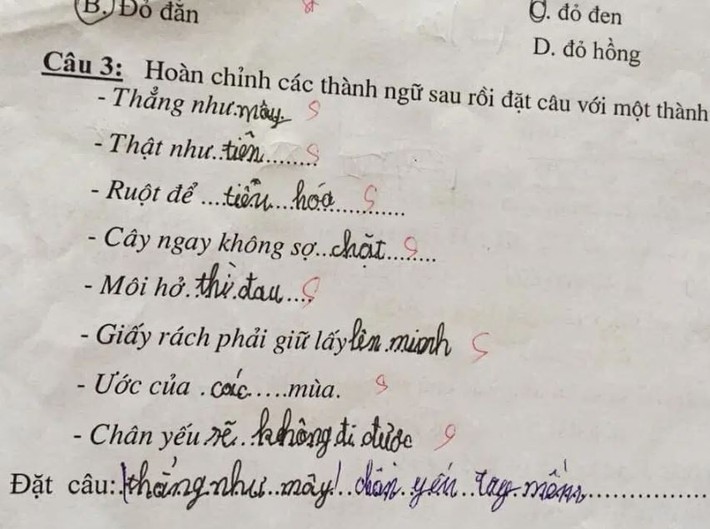 B. Đỏ đắn
C. đỏ đen
D. đỏ hồng
Câu 3: Hoàn chỉnh các thành ngữ sau rồi đặt câu với một thành
- Thẳng như mây
- Thật như..tiên........
- Ruột để ....tiêu...hóa............
- Cây ngay không sợ..chặt........
- Môi hở.thì.đau...
- Giấy rách phải giữ lấy lên mình
- Ước của .các.....mùa.
- Chân yếu sẽ..không đi được
Đặt câu: thẳng.như..mây!..chân.yếu..tay.mềm..................